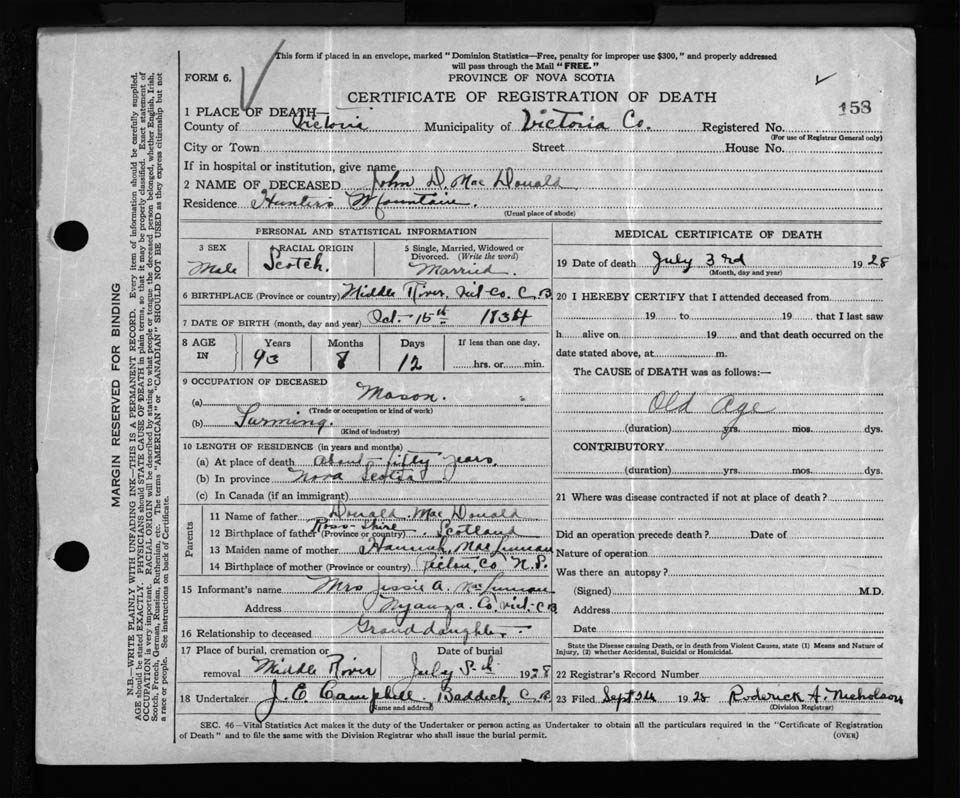 This form if placed in an envelope, marked "Dominion Statistics—Free, penalty for improper use $300," and properly addressed
will pass through the Mail "FREE."
FORM 6.
PROVINCE OF NOVA SCOTIA
CERTIFICATE OF REGISTRATION OF DEATH
158
1 PLACE OF DEATH—
County of Victoria Municipality of Victoria Co. Registered No.
(For use of Registrar General only)
City or Town Street House No.
If in hospital or institution, give name
2 NAME OF DECEASED John D. Mac Donald
Residence Hunters Mountain.
(Usual place of abode)
PERSONAL AND STATISTICAL INFORMATION
3 SEX
Male
RACIAL ORIGIN
Scotch.
5 Single, Married, Widowed or
Divorced. (Write the word)
Married.
6 BIRTHPLACE (Province or country) Middle River, Vict. Co. C.B.
7 DATE OF BIRTH (month, day and year) Oct. 15th 1834
8 AGE IN
Years Months Days If less than one day,
93 8 12 hrs. or min.
9 OCCUPATION OF DECEASED
(a) Mason.
(Trade or occupation or kind of work)
(b) Farming.
(Kind of industry)
10 LENGTH OF RESIDENCE (in years and months)
(a) At place of death About fifty years.
(b) In province Nova Scotia
(c) In Canada (if an immigrant)
Parents
11 Name of father Donald Mac Donald
12 Birthplace of father (Province or country) Ross-Shire, Scotland
13 Maiden name of mother Hannah Mac Lennan
14 Birthplace of mother (Province or country) Pictou, Co. N.S.
15 Informant's name Mrs Jessie A. McLennan
Address Nyanza, Co Vict. C.B.
16 Relationship to deceased Granddaughter
17 Place of burial, cremation or
removal Middle River
Date of burial
July 5th 1928
18 Undertaker J. E. Campbell. Baddeck, C.B.
(Name and address)
MEDICAL CERTIFICATE OF DEATH
19 Date of death July 3rd 1928
(Month, day and year)
20 I HEREBY CERTIFY that I attended deceased from
19 to 19 that I last saw
h alive on 19 and that death occurred on the
date stated above, at m.
The CAUSE of DEATH was as follows:—
Old Age
(duration) yrs. mos. dys.
CONTRIBUTORY
(duration) yrs. mos. dys.
21 Where was disease contracted if not at place of death?
Did an operation precede death? Date of
Nature of operation
Was there an autopsy?
(Signed) M.D.
Address
Date
State the Disease causing Death, or in death from Violent Causes, state (1) Means and Nature of
Injury, (2) whether Accidental, Suicidal or Homicidal.
22 Registrar's Record Number
23 Filed Sept 24 1928 Roderick A. Nicholson
(Division Registrar)
SEC. 46—Vital Statistics Act makes it the duty of the Undertaker or person acting as Undertaker to obtain all the particulars required in the "Certificate of Registration
of Death" and to file the same with the Division Registrar who shall issue the burial permit.
(OVER)
MARGIN RESERVED FOR BINDING
N.B.—WRITE PLAINLY WITH UNFADING INK—THIS IS A PERMANENT RECORD. Every item of information should be carefully supplied.
AGE should be stated EXACTLY. PHYSICIANS should STATE CAUSE OF DEATH in plain terms, so that it may be properly classified. Exact statement of
OCCUPATION is very important. RACIAL ORIGIN will be described by stating to what people or tongue the deceased person belonged, whether English, Irish,
Scotch, French, German, Russian, Ruthenian, etc. The terms "AMERICAN" or "CANADIAN" SHOULD NOT BE USED as they express citizenship but not
a race or people. See instructions on back of Certificate.